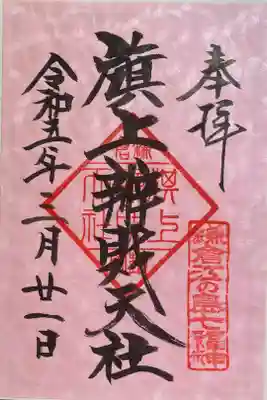 奉拝
鎌倉江の島七福神
旗上辨財天社
令和五年二月廿一日